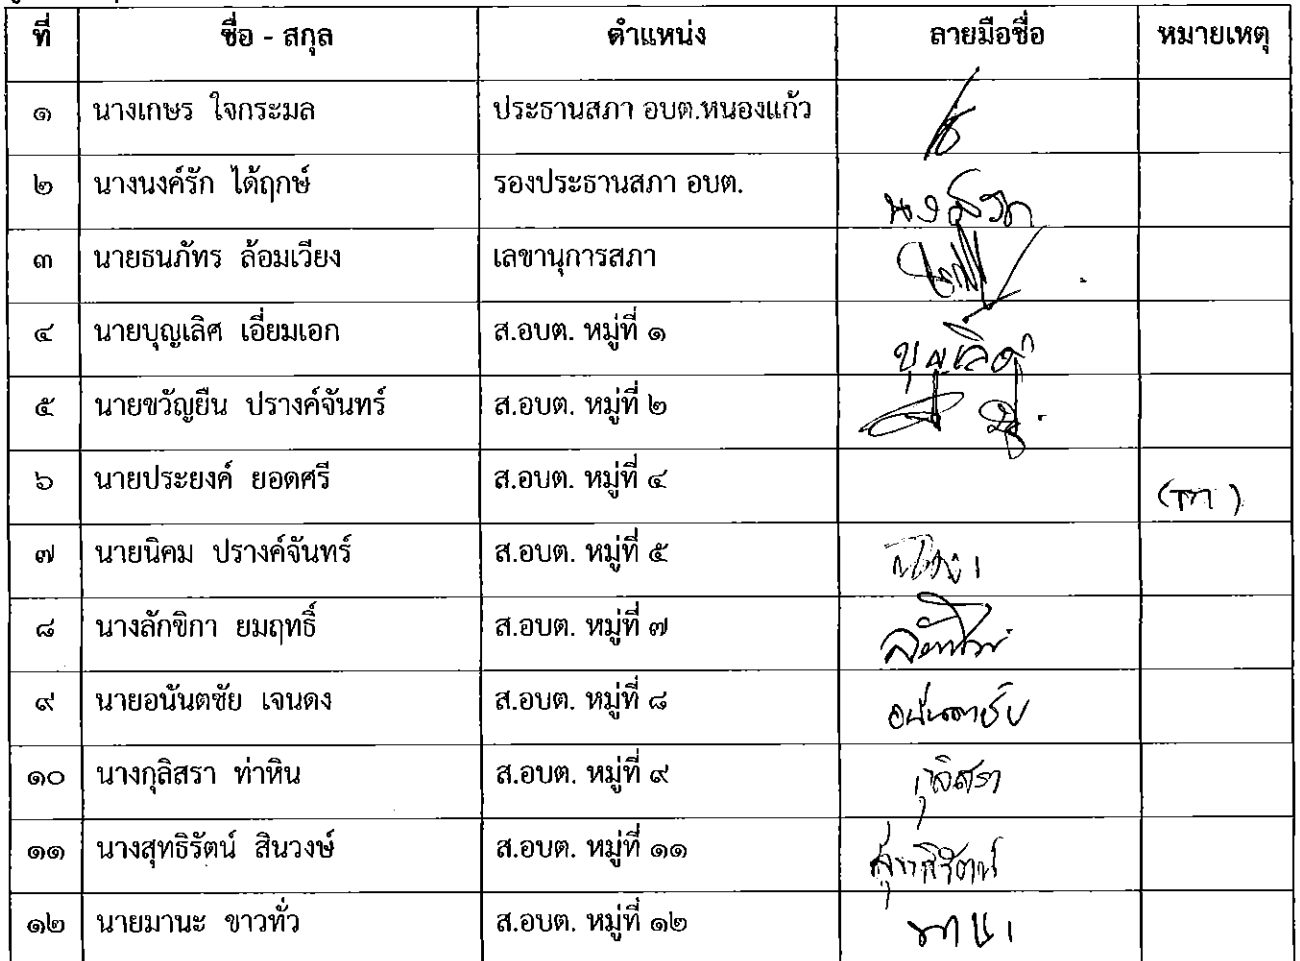 ที่ ชื่อ - สกุล ตำแหน่ง ลายมือชื่อ หมายเหตุ
๑ นางเกษร ใจกระมล ประธานสภา อบต.หนองแก้ว
๒ นางนงค์รัก ได้ฤกษ์ รองประธานสภา อบต. นงค์รัก
๓ นายธนภัทร ล้อมเวียง เลขานุการสภา
๔ นายบุญเลิศ เอี่ยมเอก ส.อบต. หมู่ที่ ๑ บุญเลิศ
๕ นายขวัญยืน ปรางค์จันทร์ ส.อบต. หมู่ที่ ๒
๖ นายประยงค์ ยอดศรี ส.อบต. หมู่ที่ ๔
๗ นายนิคม ปรางค์จันทร์ ส.อบต. หมู่ที่ ๕
๘ นางลักขิกา ยมฤทธิ์ ส.อบต. หมู่ที่ ๗
๙ นายอนันตชัย เจนดง ส.อบต. หมู่ที่ ๘ อนันตชัย
๑๐ นางกุลิสรา ท่าหิน ส.อบต. หมู่ที่ ๙ กุลิสรา
๑๑ นางสุทธิรัตน์ สินวงษ์ ส.อบต. หมู่ที่ ๑๑ สุทธิรัตน์
๑๒ นายมานะ ขาวทั่ว ส.อบต. หมู่ที่ ๑๒ มานะ